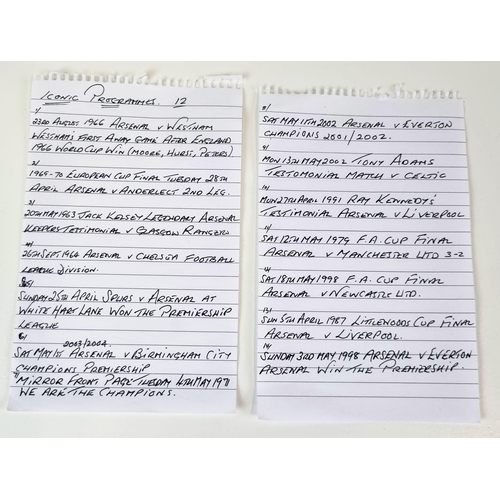 ICONIC PROGRAMMES. 12
1/
23RD AUGUST 1966 ARSENAL V WESTHAM
WESTHAM'S FIRST AWAY GAME AFTER ENGLAND
1966 WORLD CUP WIN (MOORE, HURST, PETERS)
2/
1969-70 EUROPEAN CUP FINAL TUESDAY 28TH
APRIL ARSENAL V ANDERLECT 2ND LEG.
3/
20TH MAY 1963 JACK KELSEY LEGENDARY ARSENAL
KEEPERS TESTIMONIAL V GLASGOW RANGERS
4/
26TH SEPT 1964 ARSENAL V CHELSEA FOOTBALL
LEAGUE DIVISION.
5/
SUNDAY 25TH APRIL SPURS V ARSENAL AT
WHITE HART LANE WON THE PREMIERSHIP
LEAGUE
6/
2003/2004.
SAT MAY 15 ARSENAL V BIRMINGHAM CITY
CHAMPIONS PREMIERSHIP
7/ MIRROR FRONT PAGE TUESDAY 4TH MAY 1971
WE ARE THE CHAMPIONS.
8/
SAT MAY 11TH 2002 ARSENAL V EVERTON
CHAMPIONS 2001/2002.
9/
MON 13TH MAY 2002 TONY ADAMS
TESTOMONIAL MATCH V CELTIC
10/
MON 27TH APRIL 1991 RAY KENNEDY'S
TESTIMONIAL ARSENAL V LIVERPOOL
11/
SAT 12TH MAY 1979 F.A. CUP FINAL
ARSENAL V MANCHESTER UTD 3-2
12/
SAT 18TH MAY 1998 F.A. CUP FINAL
ARSENAL V NEWCASTLE UTD.
13/
SUN 5TH APRIL 1987 LITTLEWOODS CUP FINAL
ARSENAL V LIVERPOOL.
14/
SUNDAY 3RD MAY 1998 ARSENAL V EVERTON
ARSENAL WIN THE PREMIERSHIP.